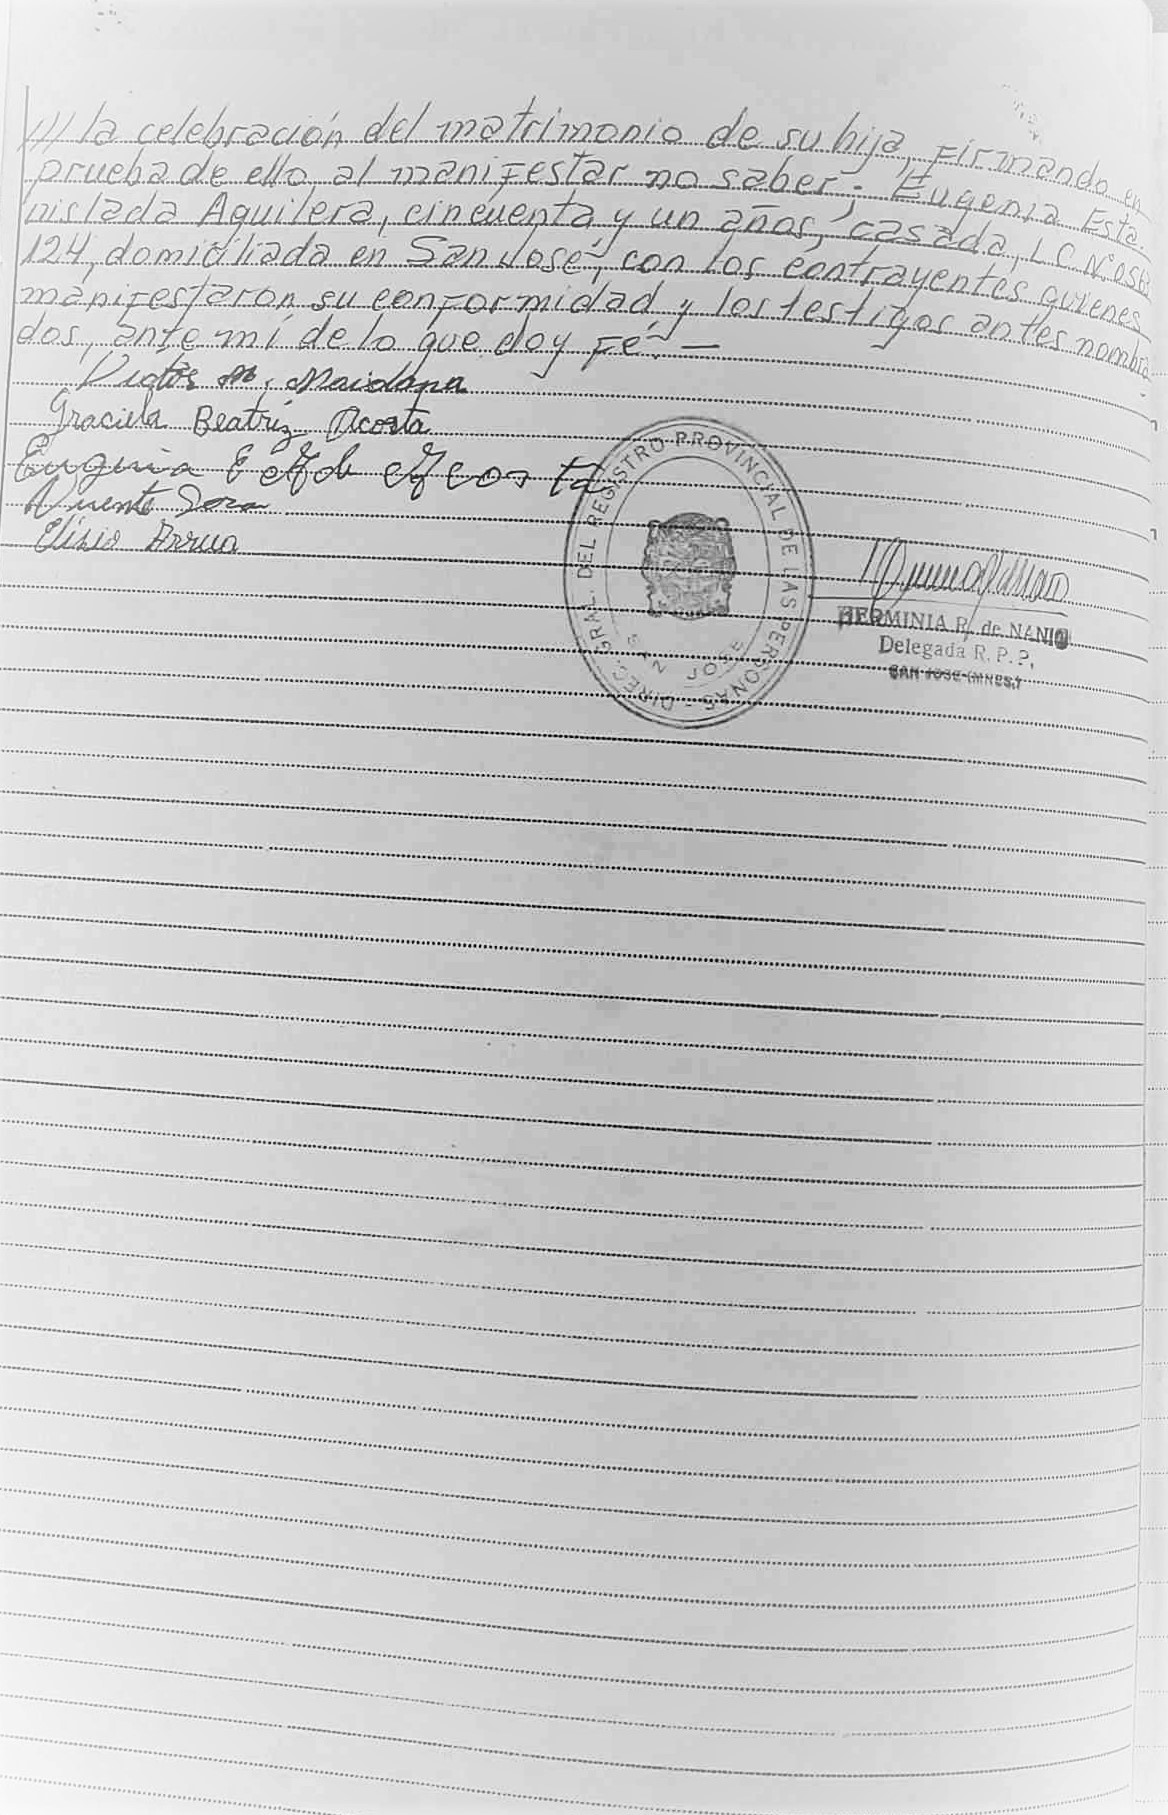 /// la celebración del matrimonio de su hija, firmando en
prueba de ello, al manifestar no saber; Eugenia Esta-
nislada Aguilera, cincuenta y un años, casada, L C N°
124, domiciliada en San José, con los contrayentes quienes
manifestaron su conformidad y los testigos antes nombra
dos, ante mí de lo que doy fé. —
M. Maidana
Graciela Beatriz Acosta
Eugenia E A de Acosta
Vicente
Elisio Arrua
DIREC. GRAL. DEL REGISTRO PROVINCIAL DE LAS PERSONAS -
SAN JOSE
HERMINIA R. de NANIO
Delegada R. P. P.
SAN JOSE (MNES.)